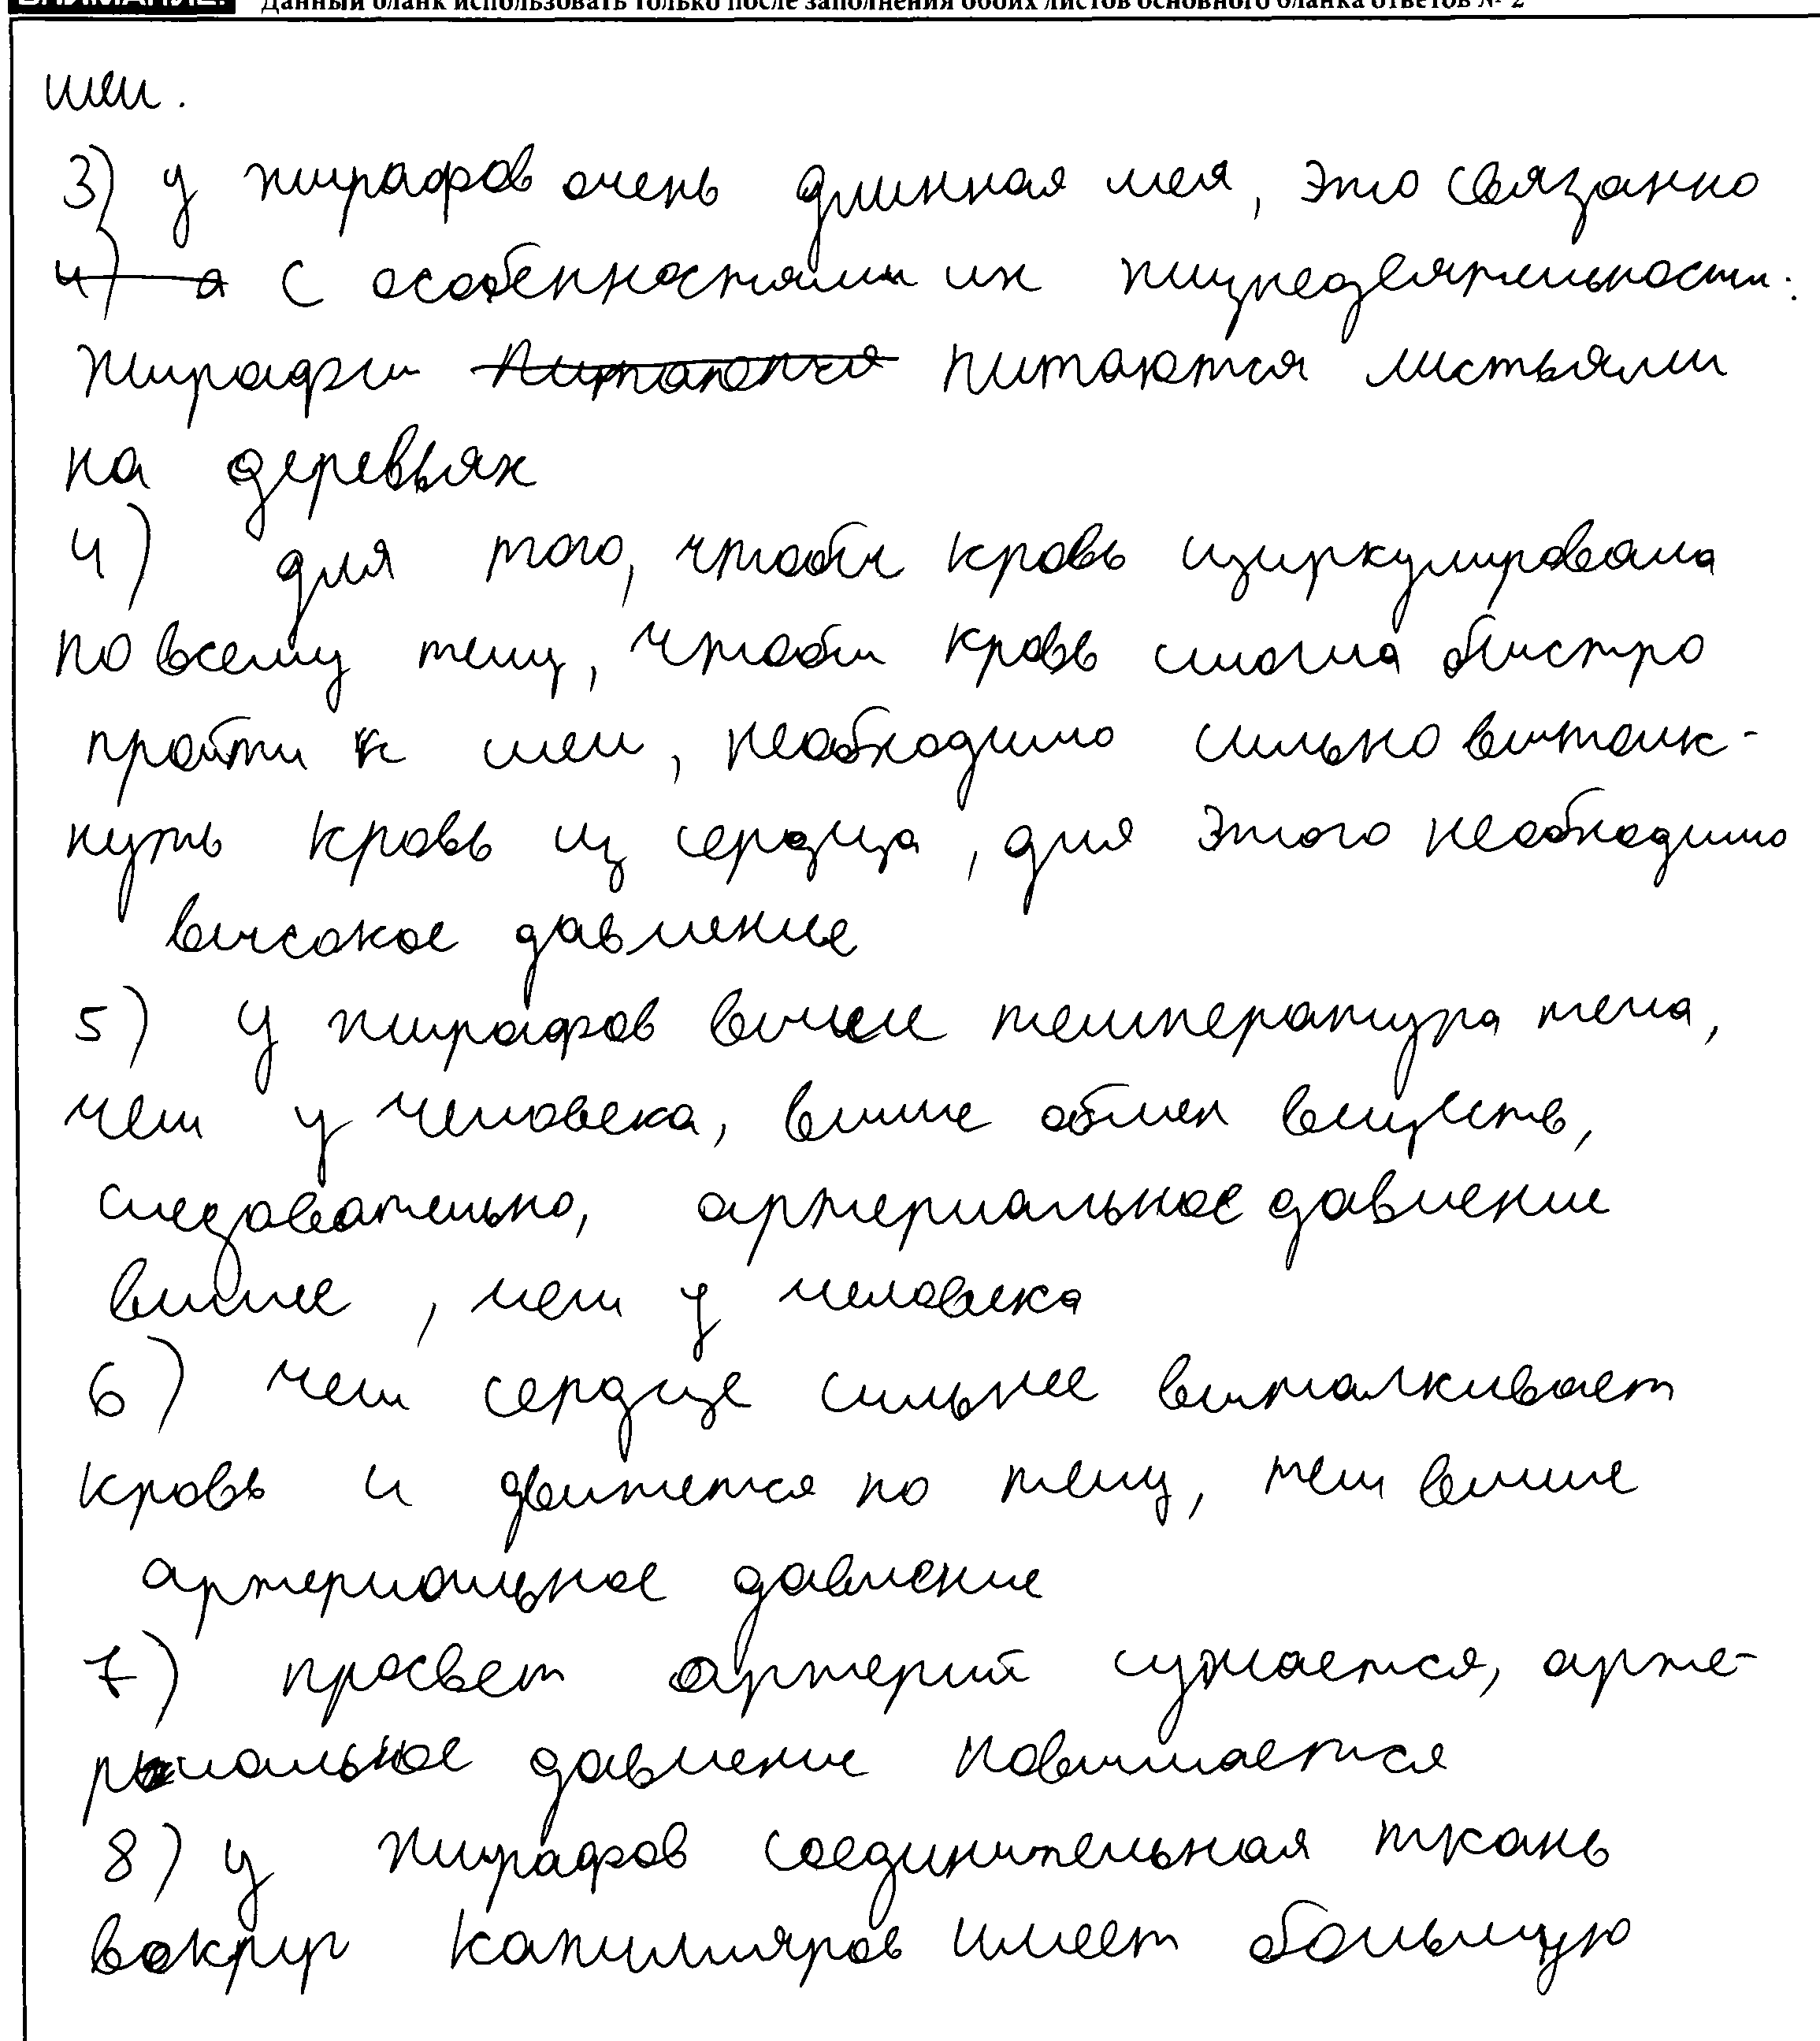 ВНИМАНИЕ! Данный бланк использовать только после заполнения обоих листов основного бланка ответов № 2
шеи.
3) у жирафов очень длинная шея, это связанно
4) а с особенностями их жизнедеятельности:
жирафы питаются питаются листьями
на деревьях
4) для того, чтобы кровь циркулировала
по всему телу, чтобы кровь смогла быстро
пройти к шеи, необходимо сильно вытолк-
нуть кровь из сердца, для этого необходимо
высокое давление
5) У жирафов выше температура тела,
чем у человека, выше обмен веществ,
следовательно, артериальное давление
выше, чем у человека
6) чем сердце сильнее выталкивает
кровь и движется по телу, тем выше
артериальное давление
7) просвет артерий сужается, арте-
риальное давление повышается
8) у жирафов соединительная ткань
вокруг капилляров имеет большую